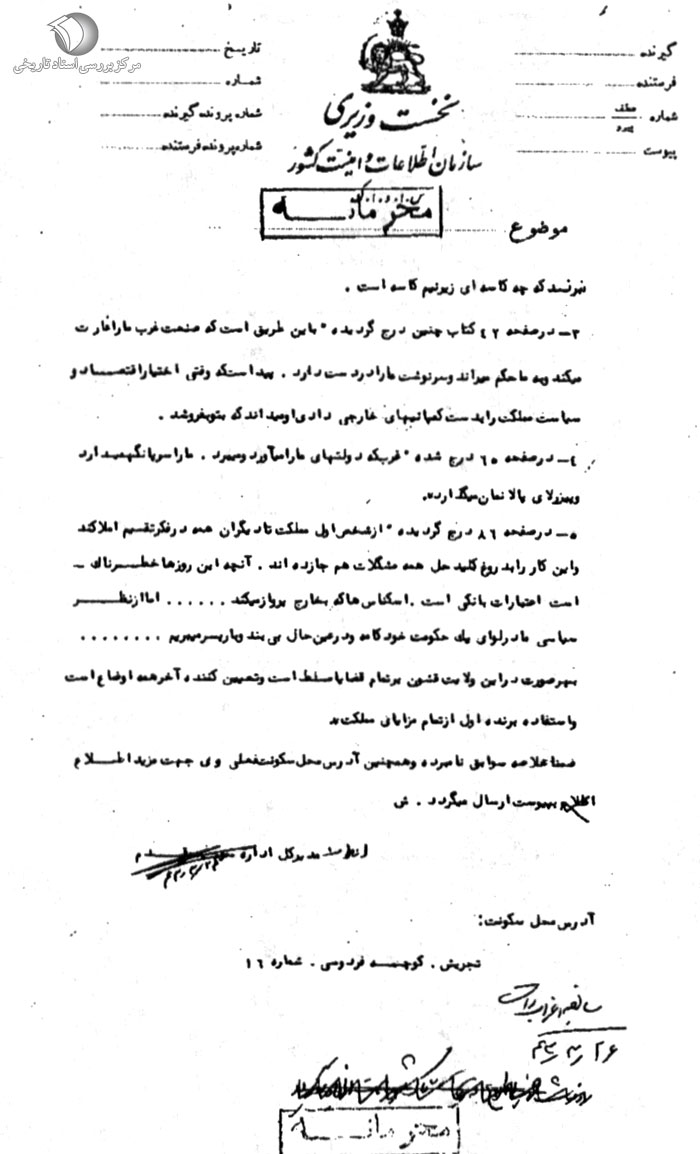 مرکز بررسی اسناد تاریخی
گیرنده
فرستنده
شماره
عطف
پیرو
پیوست
تاریخ
شماره
شماره پرونده گیرنده
شماره پرونده فرستنده
نخست وزیری
سازمان اطلاعات و امنیت کشور
محرمانه
موضوع
نپرسد که چه کاسه ای زیر نیم کاسه است .
۳- در صفحه ۴۲ کتاب چنین درج گردیده " باین طریق است که صنعت غرب ما را غارت
میکند و به ما حکم میراند و سرنوشت ما را در دست دارد . پیداست که وقتی اختیار اقتصاد و
سیاست مملکت را بدست کمپانیهای خارجی دادی او میداند که بتو بفروشد .
۴- در صفحه ۶۵ درج شده " غرب که دولتهای ما را میآورد و میبرد . ما را سرپا نگهمیدارد
و بمن لای پالانمان میگذارد ".
۵- در صفحه ۸۶ درج گردیده " از شخص اول مملکت تا دیگران همه در فکر تقسیم املاکند
و این کار را بدروغ کلید حل همه مشگلات هم جا زده اند . آنچه این روزها خطرناک -
است اعتبارات بانکی است . اسکناس ها که بخارج پرواز میکند ...... اما از نظر
سیاسی ما در لوای یک حکومت خودکامه و در عین حال بی بند و بار بسر میبریم ........
بهر صورت در این ولایت قشون بر تمام قضایا مسلط است و تعیین کننده آخر همه اوضاع است
و استفاده برنده اول از تمام مزایای مملکت
ضمنا خلاصه سوابق نامبرده و همچنین آدرس محل سکونت فعلی وی جهت مزید اطلاع
به پیوست ارسال میگردد . ش
مدیر کل اداره
آدرس محل سکونت:
تجریش . کوچه فردوسی . شماره ۱۶
محرمانه